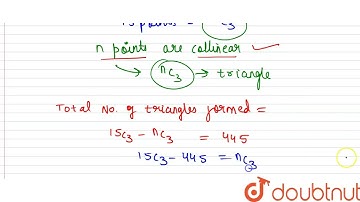 15 points = 15C3
n points are collinear
nC3 → triangle
Total No. of triangles formed =
15C3 - nC3 = 445
15C3 - 445 = nC3
doubtnut